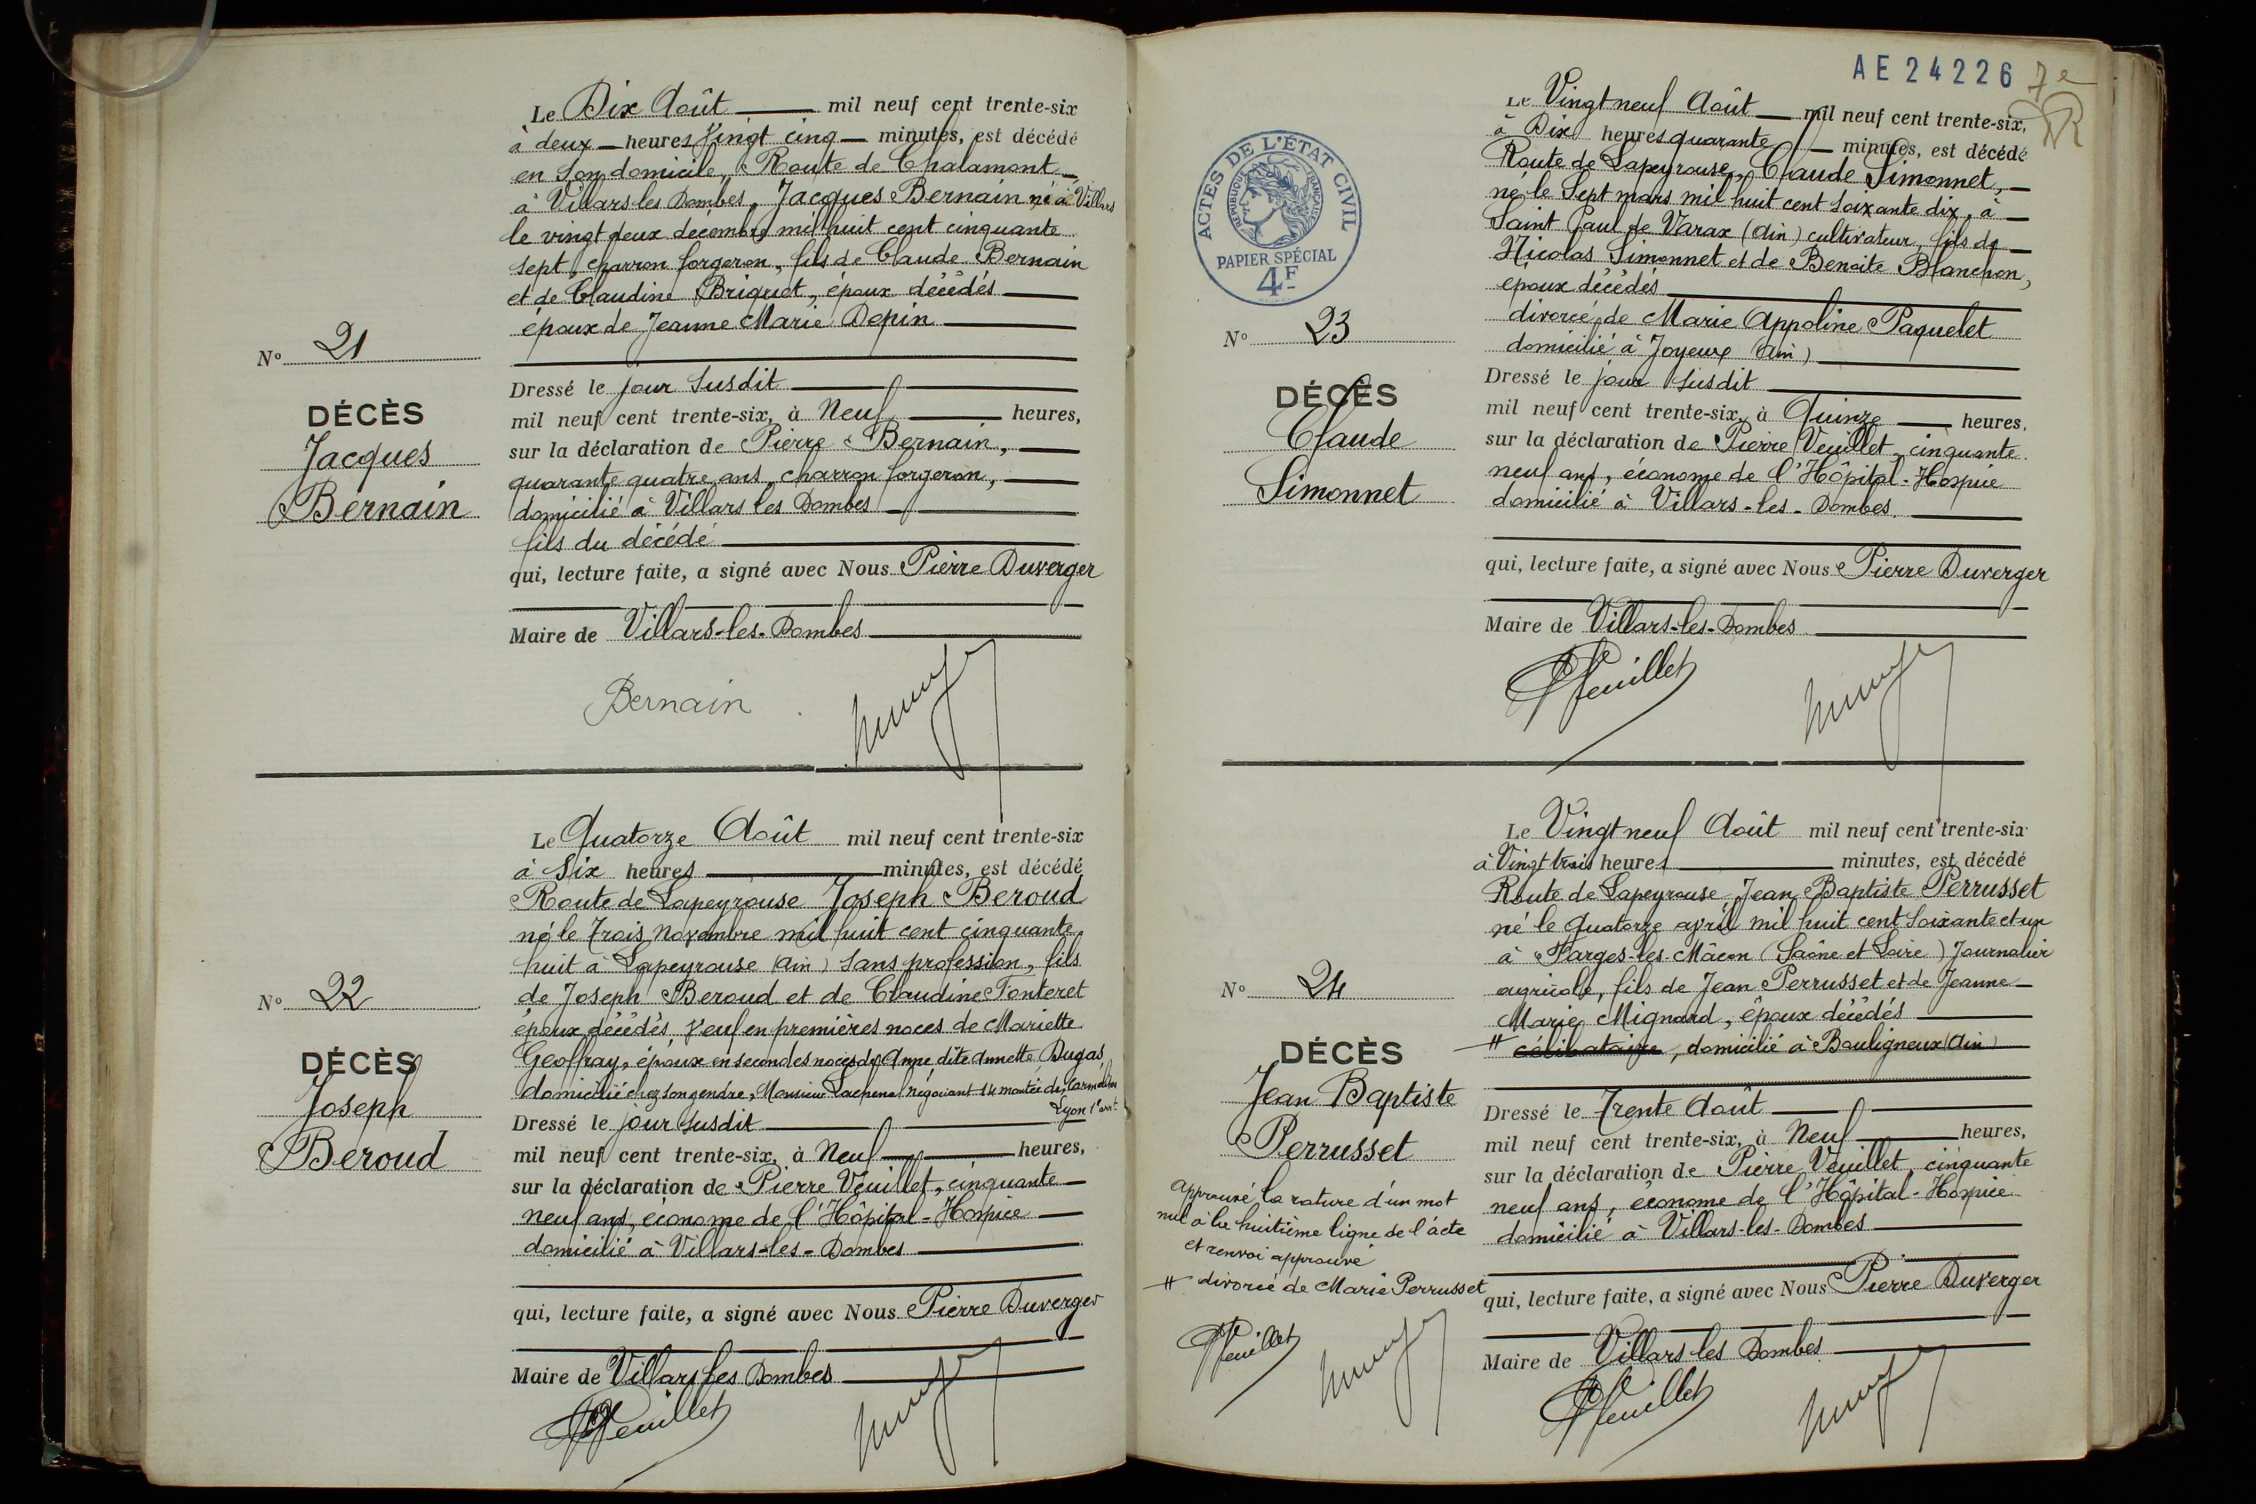 Le Dix Août mil neuf cent trente-six
à deux heures vingt cinq minutes, est décédé
en son domicile, Route de Chalamont
à Villars les Dombes, Jacques Bernain né à Villars
le vingt deux décembre mil huit cent cinquante
sept, charron forgeron, fils de Claude Bernain
et de Claudine Briquet, époux décédés
époux de Jeanne Marie Depin
N° 21
DÉCÈS
Jacques
Bernain
Dressé le jour susdit
mil neuf cent trente-six, à Neuf heures,
sur la déclaration de Pierre Bernain,
quarante quatre ans, charron forgeron,
domicilié à Villars les Dombes
fils du décédé
qui, lecture faite, a signé avec Nous Pierre Duverger
Maire de Villars-les-Dombes
Bernain
Le Quatorze Août mil neuf cent trente-six
à Six heures minutes, est décédé
Route de Lapeyrouse Joseph Beroud
né le Trois Novembre mil huit cent cinquante
huit à Lapeyrouse (Ain) sans profession, fils
de Joseph Beroud et de Claudine Fonteret
époux décédés, veuf en premières noces de Mariette
Geoffray, époux en secondes noces de Anne dite Annette Dugas,
domicilié chez son gendre, Monsieur Lachenal négociant 14 montée des Carmélites
Lyon 1er arrt
N° 22
DÉCÈS
Joseph
Beroud
Dressé le jour susdit
mil neuf cent trente-six, à Neuf heures,
sur la déclaration de Pierre Veuillet, cinquante
neuf ans, économe de l'Hôpital-Hospice
domicilié à Villars-les-Dombes
qui, lecture faite, a signé avec Nous Pierre Duverger
Maire de Villars les Dombes
PVeuillet
AE 24226 7e
ACTES DE L'ÉTAT CIVIL
RÉPUBLIQUE FRANÇAISE
PAPIER SPÉCIAL
4F
Le Vingt neuf Août mil neuf cent trente-six,
à Dix heures quarante minutes, est décédé
Route de Lapeyrouse, Claude Simonnet,
né le Sept mars mil huit cent soixante dix, à
Saint Paul de Varax (Ain) cultivateur, fils de
Nicolas Simonnet et de Benoite Blanchon,
époux décédés
divorcé de Marie Appoline Paquelet
domicilié à Joyeux (Ain)
N° 23
DÉCÈS
Claude
Simonnet
Dressé le jour susdit
mil neuf cent trente-six, à Quinze heures,
sur la déclaration de Pierre Veuillet, cinquante
neuf ans, économe de l'Hôpital-Hospice
domicilié à Villars-les-Dombes.
qui, lecture faite, a signé avec Nous Pierre Duverger
Maire de Villars-les-Dombes
PVeuillet
Le Vingt neuf Août mil neuf cent trente-six
à Vingt trois heures minutes, est décédé
Route de Lapeyrouse, Jean Baptiste Perrusset
né le quatorze avril mil huit cent soixante et un
à Farges-les-Mâcon (Saône et Loire) Journalier
agricole, fils de Jean Perrusset et de Jeanne
Marie Mignard, époux décédés
# célibataire, domicilié à Bouligneux (Ain)
N° 24
DÉCÈS
Jean Baptiste
Perrusset
Approuvé la rature d'un mot
nul à la huitième ligne de l'acte
et renvoi approuvé
# divorcé de Marie Perrusset
PVeuillet
Dressé le Trente Août
mil neuf cent trente-six, à Neuf heures,
sur la déclaration de Pierre Veuillet, cinquante
neuf ans, économe de l'Hôpital-Hospice
domicilié à Villars-les-Dombes
qui, lecture faite, a signé avec Nous Pierre Duverger
Maire de Villars les Dombes
PVeuillet